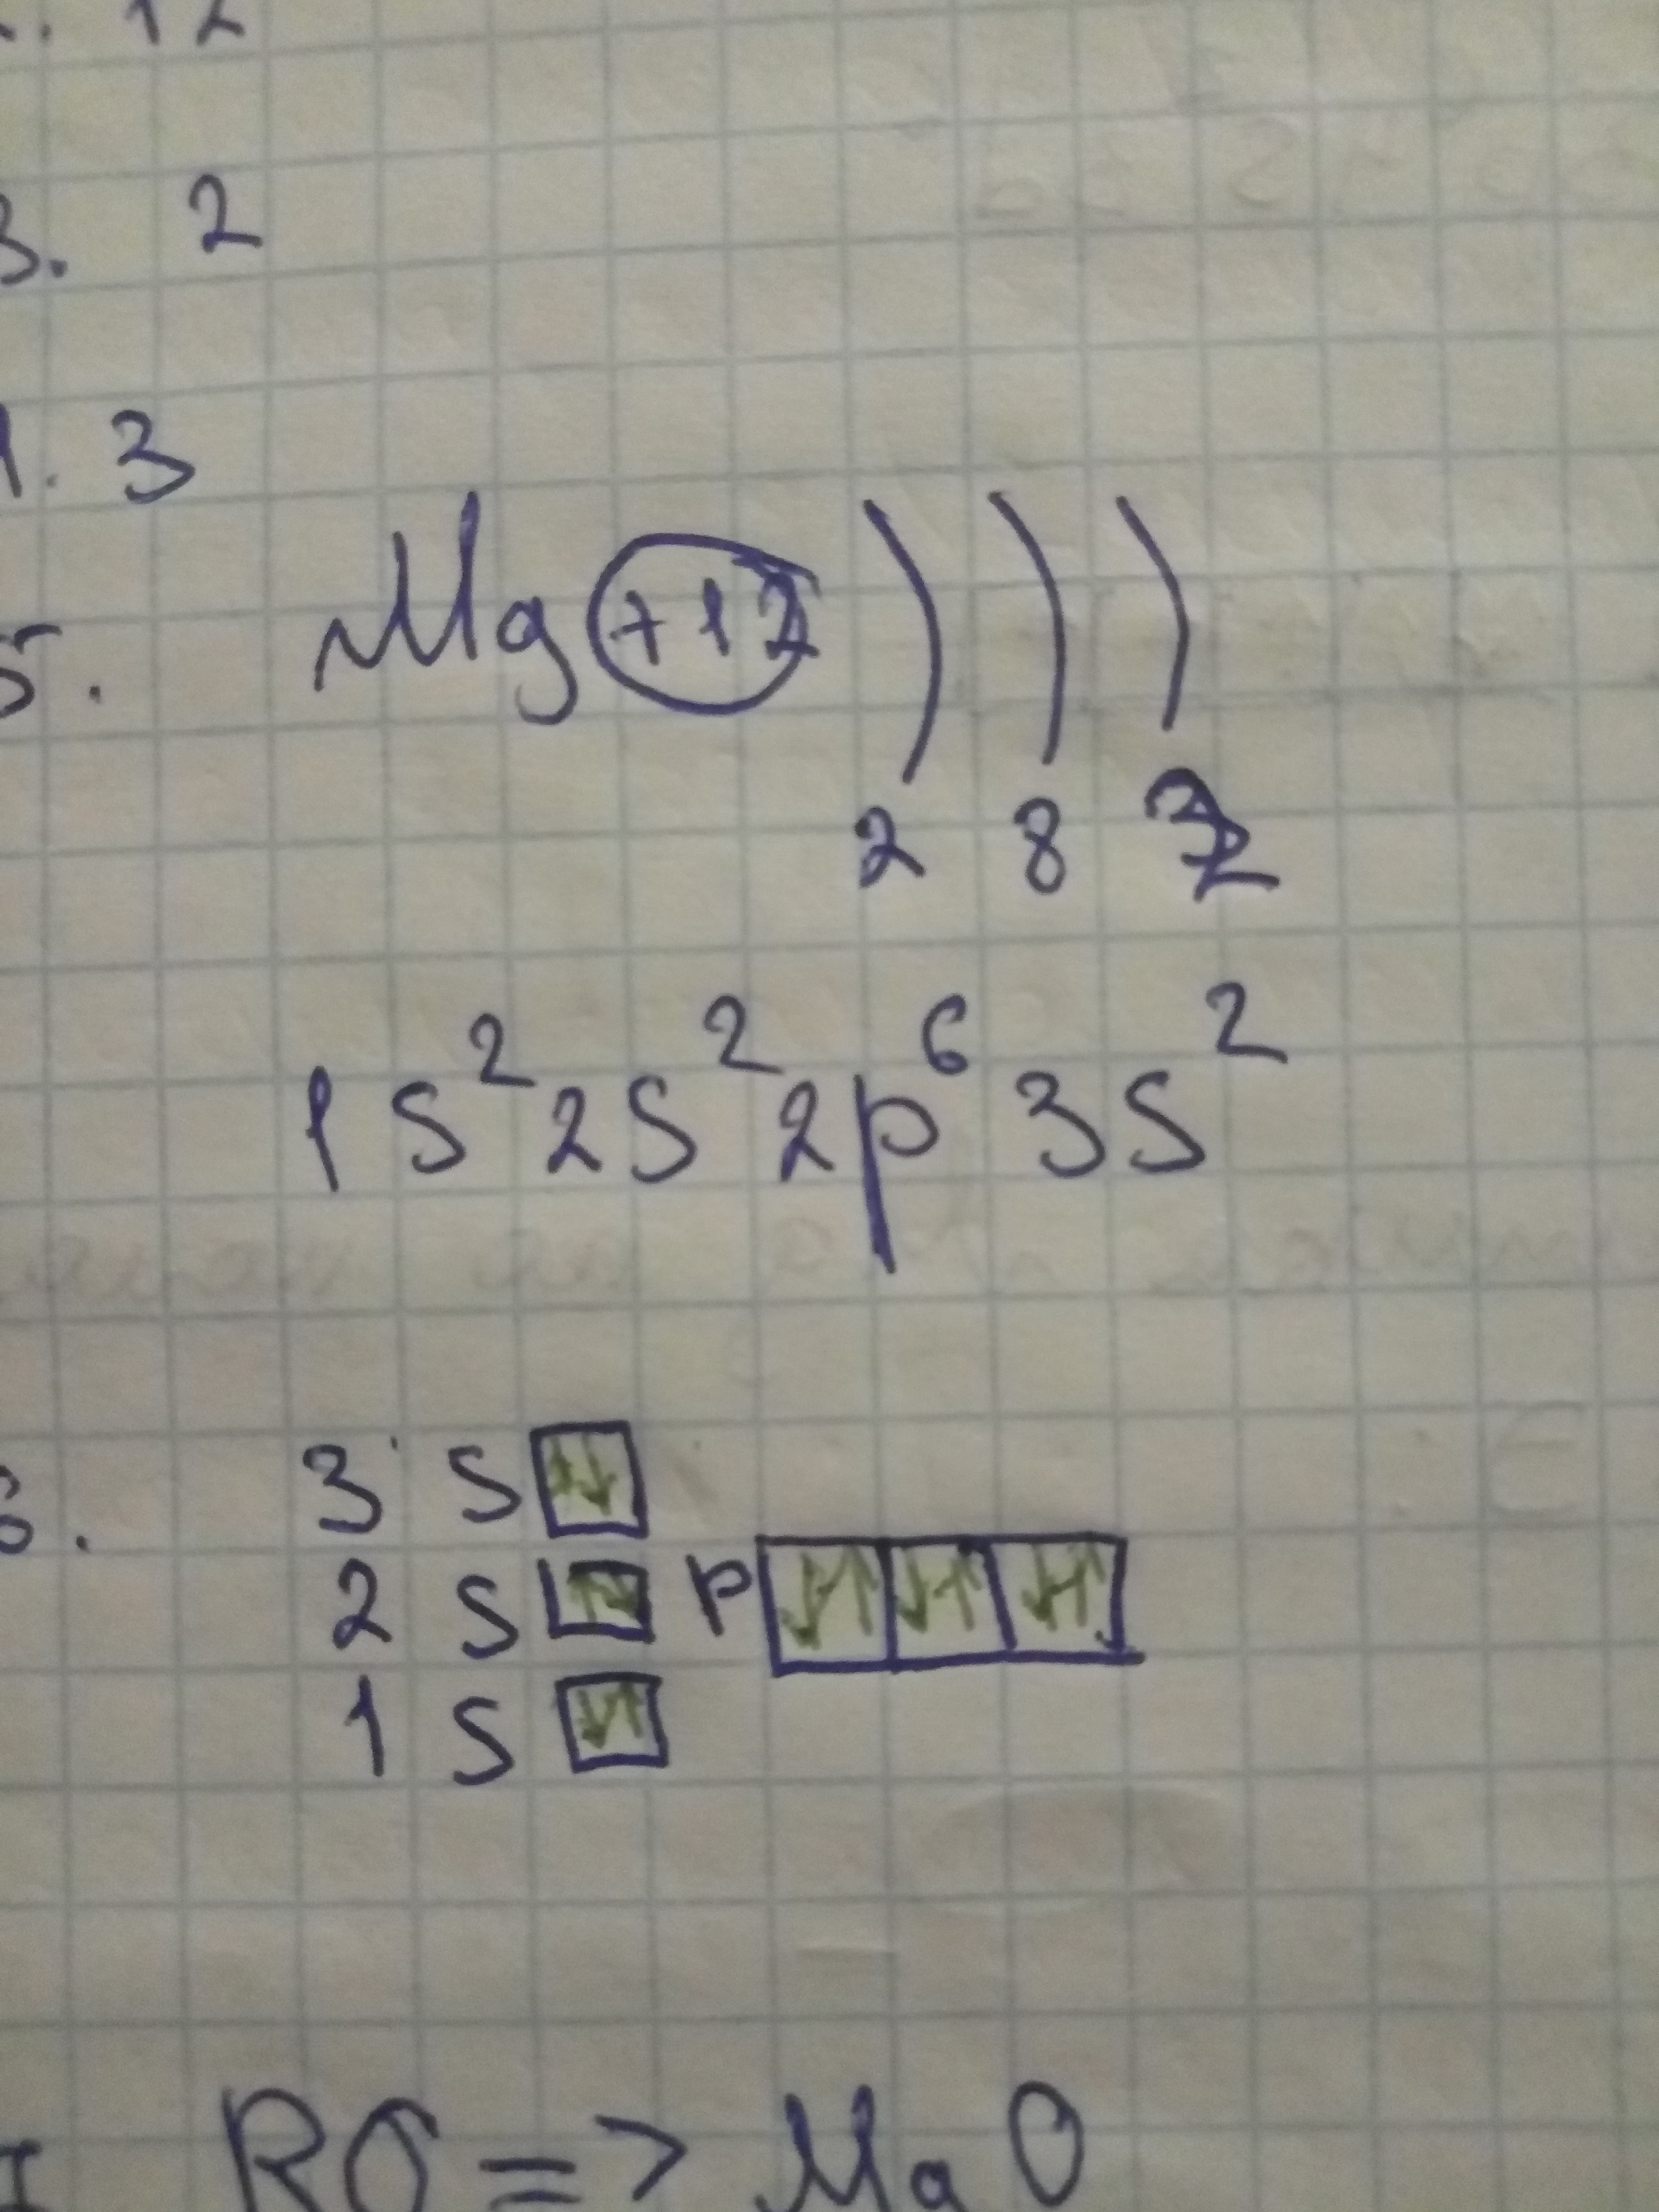 12
3. 2
4. 3
5. Mg +12
2 8 2
1s²2s²2p⁶3s²
6. 3 s ↑↓
2 s ↑↓ p ↓↑ ↓↑ ↓↑
1 s ↓↑
RO => MgO